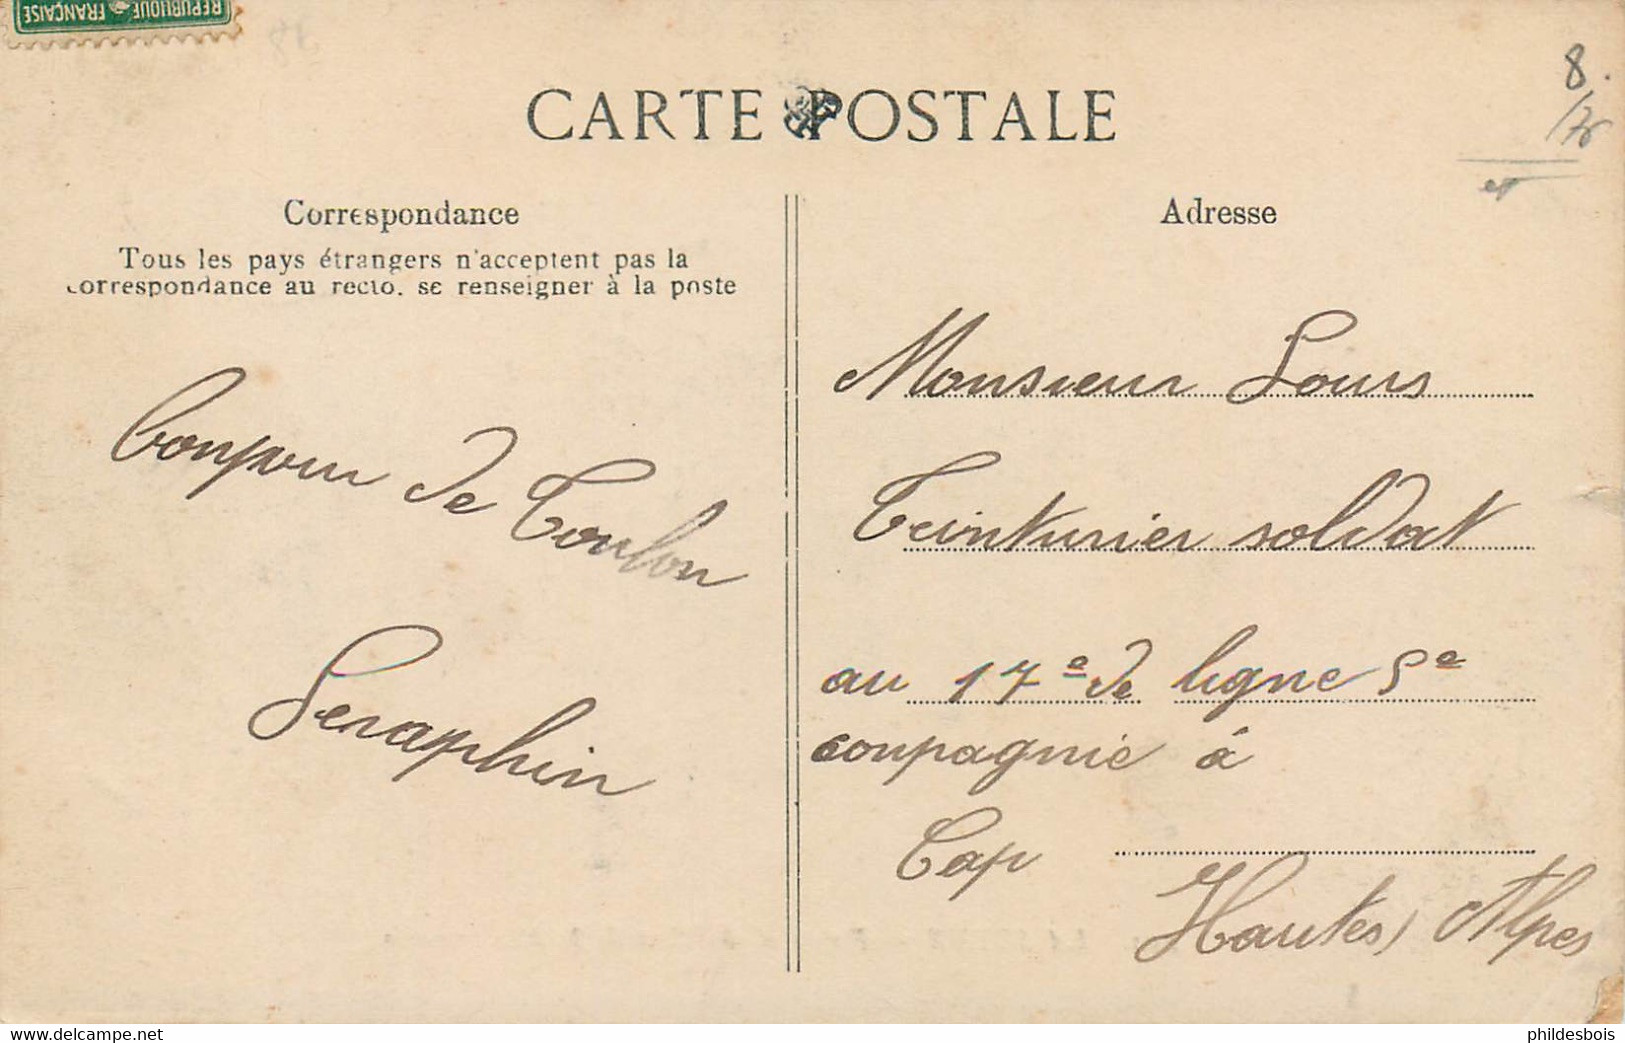 RÉPUBLIQUE FRANÇAISE
18
8.
CARTE POSTALE
Correspondance
Tous les pays étrangers n'acceptent pas la
correspondance au recto. se renseigner à la poste
bonjour de Toulon
Seraphin
Adresse
Monsieur Louis
Teinturier soldat
au 17e de ligne 5e
compagnie à
Gap
Hautes Alpes
delcampe.net
phildesbois